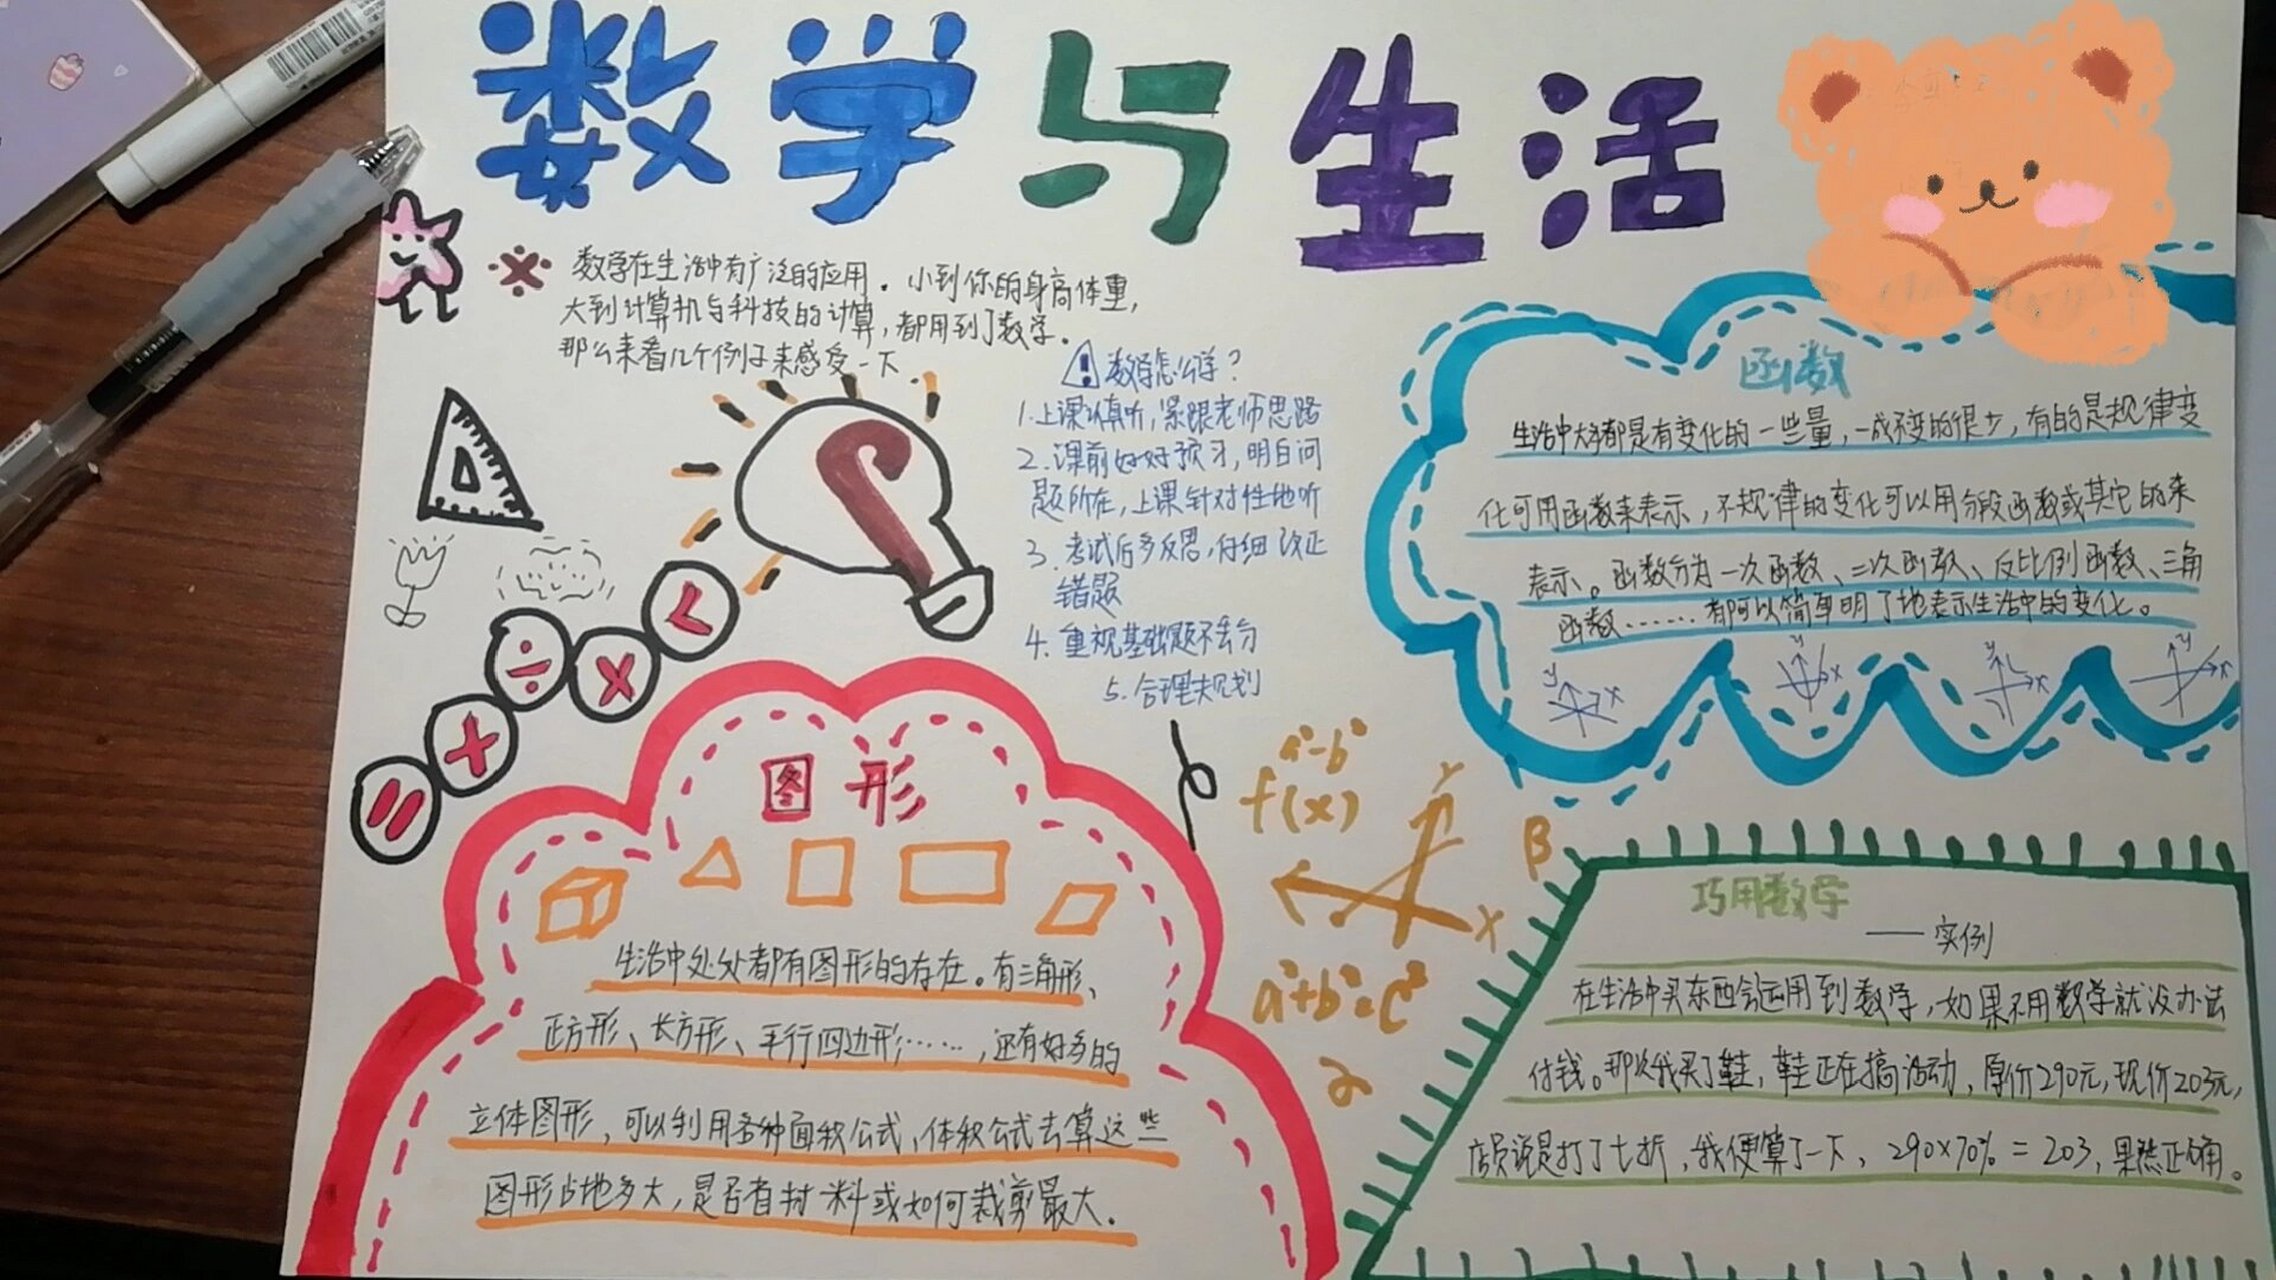 数学与生活
数学在生活中有广泛的应用。小到你的身高体重，
大到计算机与科技的计算，都用到了数学。
那么来看几个例子来感受一下.
数学怎么学？
1.上课认真听，紧跟老师思路
2.课前好好预习，明白问
题所在，上课针对性地听
3.考试后多反思，仔细改正
错题
4.重视基础题不丢分
5.合理规划
函数
生活中大多都是有变化的一些量，一成不变的很少，有的是规律变
化可用函数来表示，不规律的变化可以用分段函数或其它的来
表示。函数分为一次函数、二次函数、反比例函数、三角
函数……都可以简单明了地表示生活中的变化。
y x
y x
y x
y x
÷ × <
= +
图形
生活中处处都有图形的存在。有三角形、
正方形、长方形、平行四边形……，还有好多的
立体图形，可以利用各种面积公式、体积公式去算这些
图形占地多大，是否省材料或如何裁剪最大.
a²-b²
f(x)
Y
X
β
a²+b²=c²
巧用数学
——实例
在生活中买东西会运用到数学，如果不用数学就没办法
付钱。那次我买了鞋，鞋正在搞活动，原价290元，现价203元，
店员说是打了七折，我便算了一下，290×70%=203，果然正确。